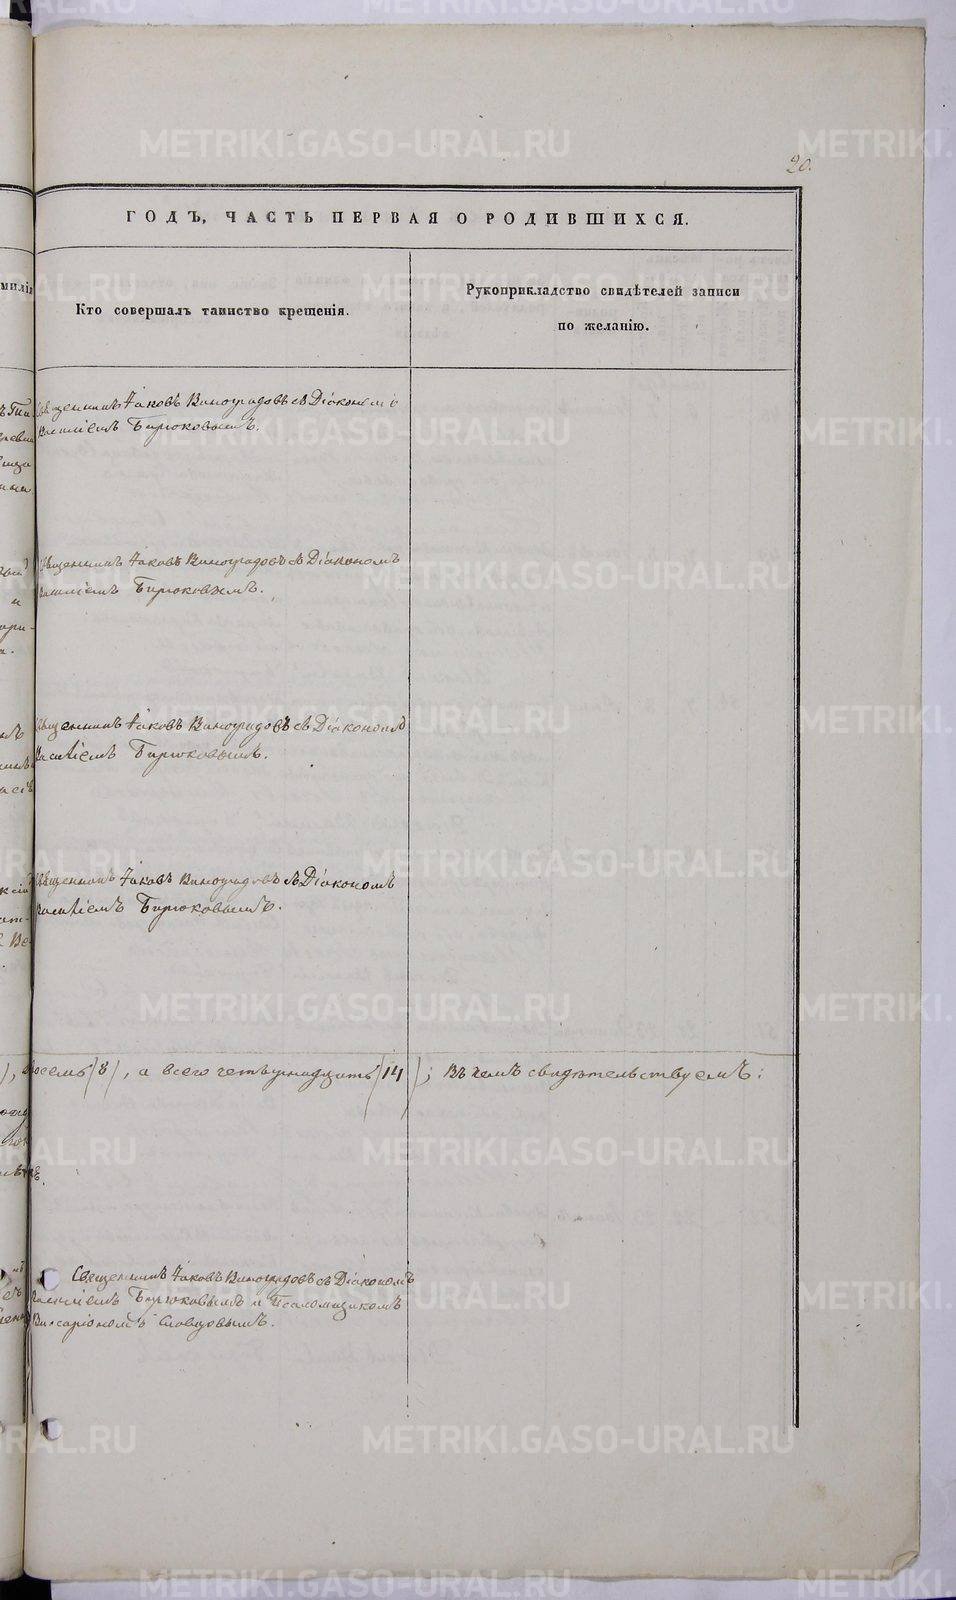 METRIKI.GASO-URAL.RU
20.
ГОДЪ, ЧАСТЬ ПЕРВАЯ О РОДИВШИХСЯ.
Кто совершалъ таинство крещенія.
Рукоприкладство свидѣтелей записи
по желанію.
Священникъ Іаковъ Виноградовъ съ Діакономъ
Василіемъ Бирюковымъ.
Священникъ Іаковъ Виноградовъ съ Діакономъ
Василіемъ Бирюковымъ.
Священникъ Іаковъ Виноградовъ съ Діакономъ
Василіемъ Бирюковымъ.
Священникъ Іаковъ Виноградовъ съ Діакономъ
Василіемъ Бирюковымъ.
восемь (8), а всего четырнадцать (14); въ чемъ свидѣтельствуемъ:
Священникъ Іаковъ Виноградовъ съ Діакономъ
Василіемъ Бирюковымъ и Псаломщикомъ
Виссаріономъ Словцовымъ.